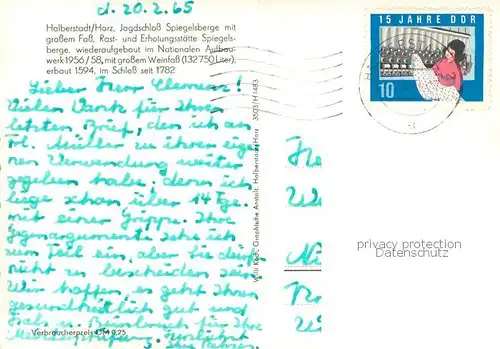 d. 20.2.65
Halberstadt/Harz, Jagdschloß Spiegelsberge mit
großem Faß, Rast- und Erholungsstätte Spiegels-
berge, wiederaufgebaut im Nationalen Aufbau-
werk 1956/58, mit großem Weinfaß (132 750 Liter),
erbaut 1594, im Schloß seit 1782
Lieber Herr Clemens!
Vielen Dank für Ihren
letzten Brief, den ich an
Frl. Müller zu ihrer eige-
nen Verwendung weiter
gegeben habe, denn ich
liege schon über 14 Tge.
mit einer Grippe. Ihre
Gegenargumente sehe ich
zum Teil ein, aber Sie dürfen
nicht zu bescheiden sein.
Wir hoffen, es geht Ihnen
gesundheitlich gut und
Hals- u. Beinbruch für Ihre
Verbraucherpreis DM 0,25
Willi Koch, Graphische Anstalt, Halberstadt/Harz 3503/H 1483
15 JAHRE DDR
10
privacy protection
Datenschutz